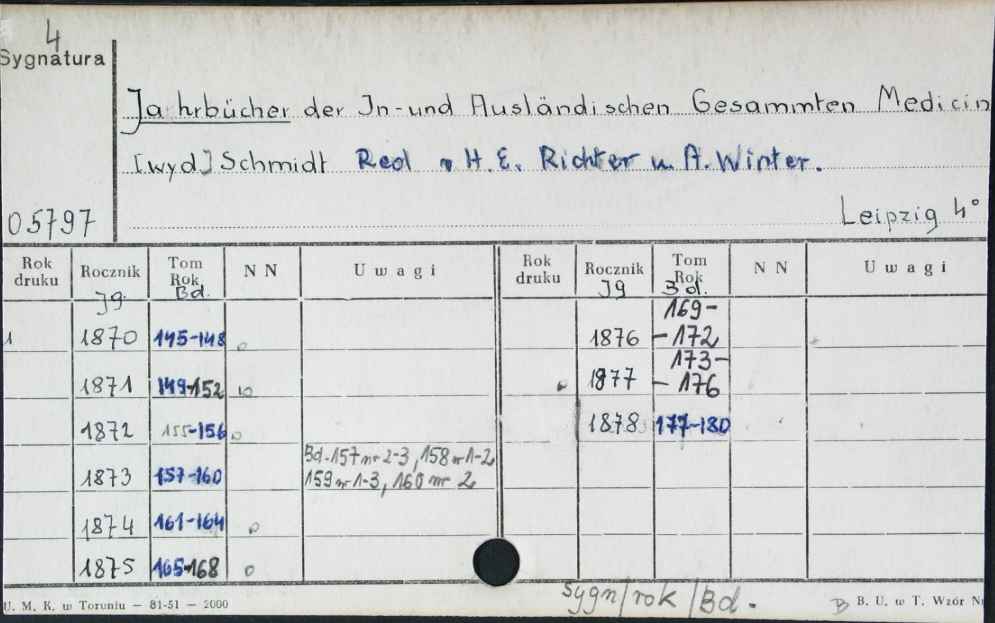 4
Sygnatura
Jahrbücher der In-und Ausländischen Gesammten Medicin
[wyd] Schmidt Red v H. E. Richter u. A. Winter.
05797
Leipzig 4°
Rok druku Rocznik Jg. Tom Rok Bd. NN Uwagi Rok druku Rocznik Jg Tom Rok Bd. NN Uwagi
1 1870 145-148 o 1876 169-172
1871 149-152 o 1877 173-176
1872 155-156 o 1878 177-180
1873 157-160 Bd. 157 nr 2-3, 158 nr 1-2, 159 nr 1-3, 160 nr 2
1874 161-164 o
1875 165-168 o
U. M. K. w Toruniu — 81-51 — 2000
Sygn/rok/Bd.
B. U. w T. Wzór Nr